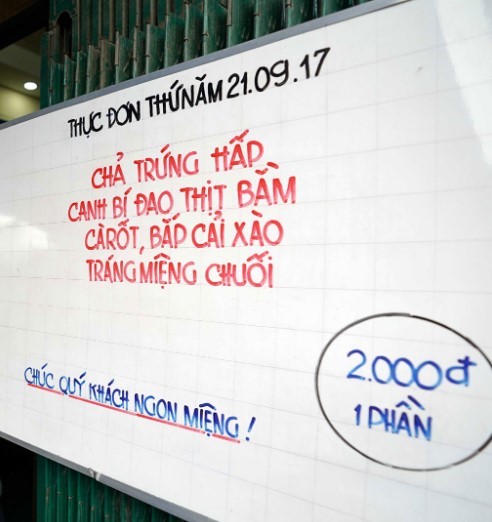 THỰC ĐƠN THỨ NĂM 21.09.17
CHẢ TRỨNG HẤP
CANH BÍ ĐAO THỊT BẰM
CÀRỐT, BẮP CẢI XÀO
TRÁNG MIỆNG CHUỐI
2.000đ
1 PHẦN
CHÚC QUÝ KHÁCH NGON MIỆNG !